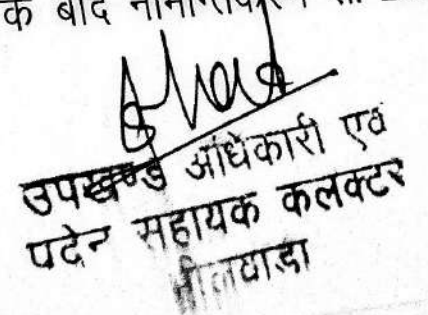 के बाद नामान्तकरण
उपखण्ड अधिकारी एवं
पदेन सहायक कलक्टर
भीलवाडा